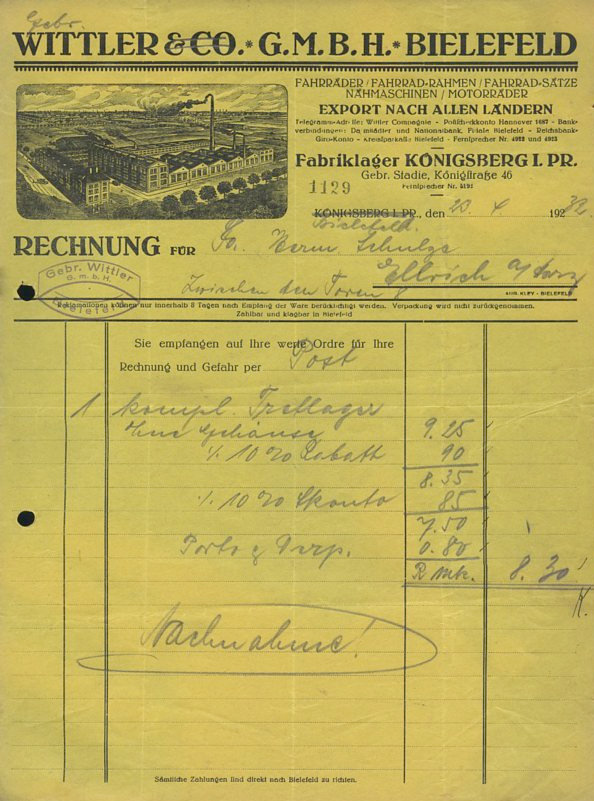 Gebr.
WITTLER & CO. * G.M.B.H. * BIELEFELD
FAHRRÄDER / FAHRRAD-RAHMEN / FAHRRAD-SÄTZE
NÄHMASCHINEN / MOTORRÄDER
EXPORT NACH ALLEN LÄNDERN
Telegramm-Adresse: Wittler Compagnie - Postscheckkonto Hannover 1687 - Bank-
verbindungen: Darmstädter und Nationalbank, Filiale Bielefeld - Reichsbank-
Giro-Konto - Kreissparkasse Bielefeld - Fernsprecher Nr. 4922 und 4923
Fabriklager KÖNIGSBERG I. PR.
Gebr. Stadie, Königstraße 46
Fernsprecher Nr. 5191
1129
KÖNIGSBERG I. PR., den 23. 4. 1932
Bielefeld.
RECHNUNG FÜR Fa. Herm. Schulze
Ellrich a/Harz
Zwischen den Toren 8
Gebr. Wittler
G.m.b.H.
Bielefeld
ANR. KLEY - BIELEFELD
Reklamationen können nur innerhalb 8 Tagen nach Empfang der Ware berücksichtigt werden. Verpackung wird nicht zurückgenommen.
Zahlbar und klagbar in Bielefeld
Sie empfangen auf Ihre werte Ordre für Ihre
Rechnung und Gefahr per Post
1 kompl. Tretlager
ohne Gehäuse 9.25
% 10% Rabatt 90
8.35
% 10% Skonto 85
7.50
Porto & Verp. 0.80
R Mk. 8.30
Nachnahme!
Sämtliche Zahlungen sind direkt nach Bielefeld zu richten.